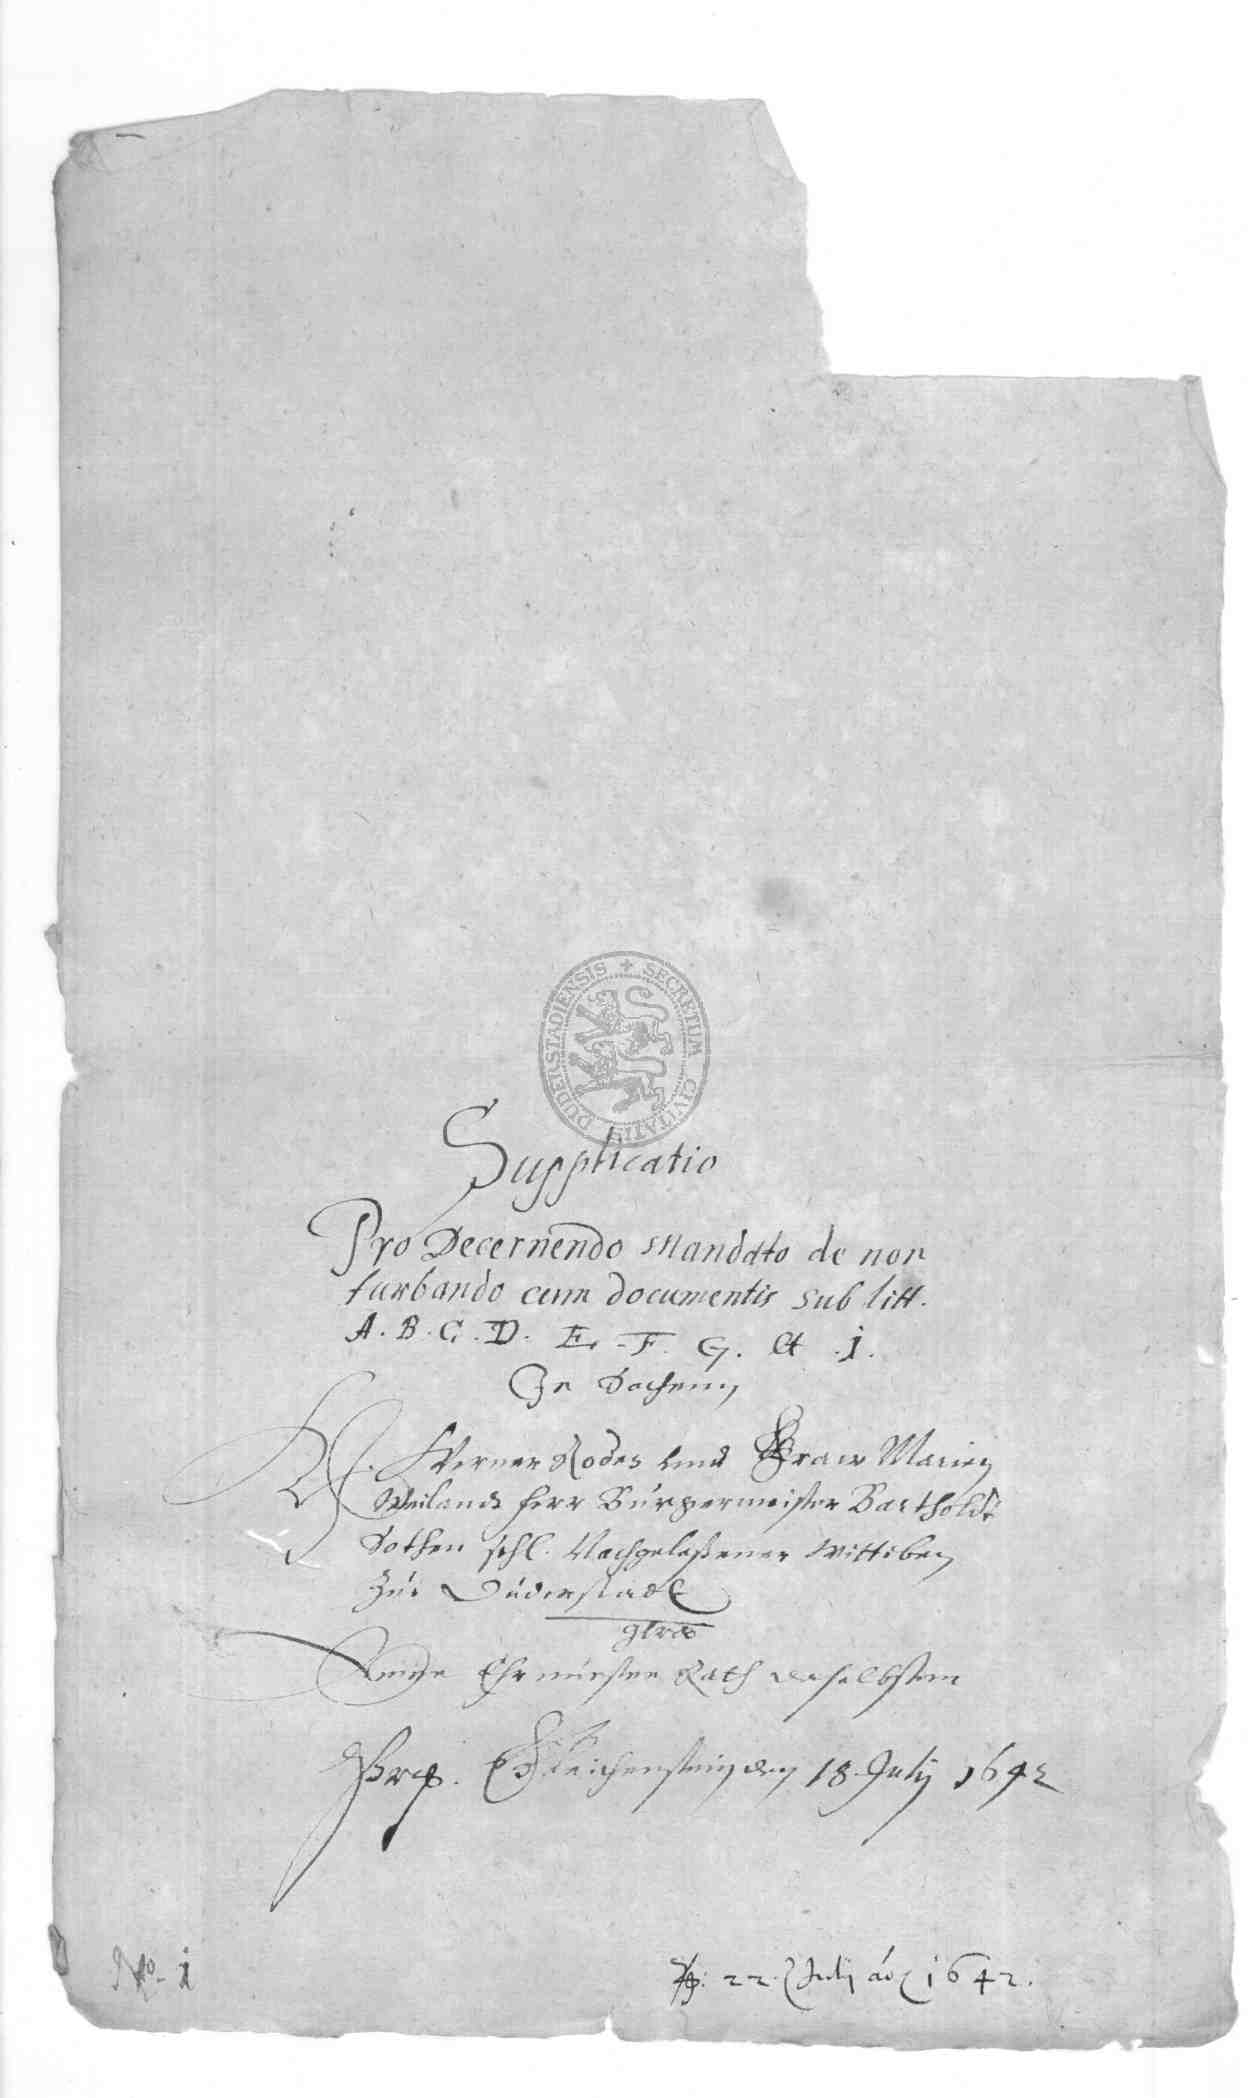 SECRETUM CIVITATIS DUDERSTADIENSIS
Supplicatio
Pro Decernendo Mandato de non
turbando cum documentis sub litt.
A. B. C. D. E. F. G. et i.
In Sachenn
Werner Rodes und Fraw Marien
Weilandt Herr Bürgermeister Bartholdt
Sothen sehl. Nachgelaßener Wittiben
Zue Duderstadt
ctra
Einen Ehrnuesten Rath daselbsten
Gleichenstein den 18. July 1642
No. 1
22. Julij ao 1642.